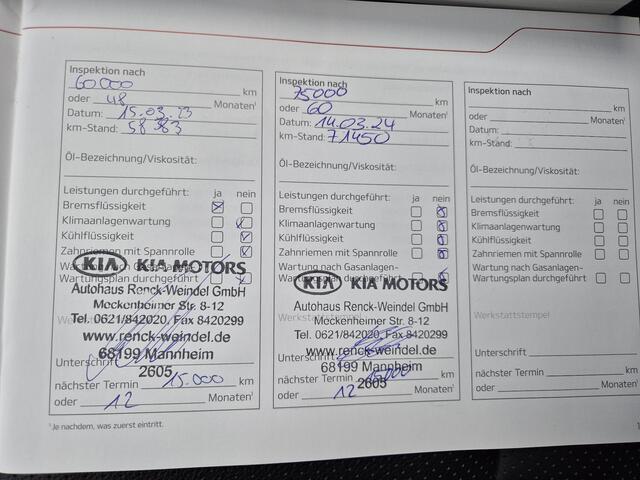 Inspektion nach
60000 km
oder 48 Monaten¹
Datum: 15.03.23
km-Stand: 58383
Öl-Bezeichnung/Viskosität:
Leistungen durchgeführt: ja nein
Bremsflüssigkeit
Klimaanlagenwartung
Kühlflüssigkeit
Zahnriemen mit Spannrolle
Wartung nach Gasanlagen-
Wartungsplan durchgeführt
KIA KIA MOTORS
Autohaus Renck-Weindel GmbH
Meckenheimer Str. 8-12
Tel. 0621/842020, Fax 8420299
www.renck-weindel.de
68199 Mannheim
2605
Unterschrift
nächster Termin 15.000 km
oder 12 Monaten¹
¹Je nachdem, was zuerst eintritt.
Inspektion nach
75000 km
oder 60 Monaten¹
Datum: 14.03.24
km-Stand: 71450
Öl-Bezeichnung/Viskosität:
Leistungen durchgeführt: ja nein
Bremsflüssigkeit
Klimaanlagenwartung
Kühlflüssigkeit
Zahnriemen mit Spannrolle
Wartung nach Gasanlagen-
Wartungsplan durchgeführt
KIA KIA MOTORS
Autohaus Renck-Weindel GmbH
Meckenheimer Str. 8-12
Tel. 0621/842020, Fax 8420299
www.renck-weindel.de
68199 Mannheim
2605
Unterschrift
nächster Termin 15000 km
oder 12 Monaten¹
Inspektion nach
km
oder Monaten¹
Datum:
km-Stand:
Öl-Bezeichnung/Viskosität:
Leistungen durchgeführt: ja nein
Bremsflüssigkeit
Klimaanlagenwartung
Kühlflüssigkeit
Zahnriemen mit Spannrolle
Wartung nach Gasanlagen-
Wartungsplan durchgeführt
Werkstattstempel
Unterschrift
nächster Termin km
oder Monaten¹